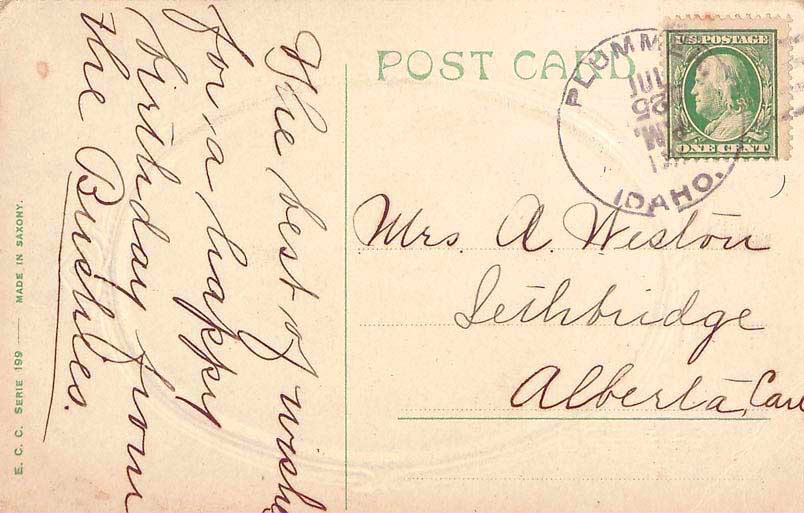 POST CARD
U.S. POSTAGE
ONE CENT
PLUMM
JUL
25
IDAHO.
Mrs. A. Weston
Lethbridge
Alberta, Can
The best of wish
for a happy
birthday from
the
E. C. C. SERIE 199 — MADE IN SAXONY.